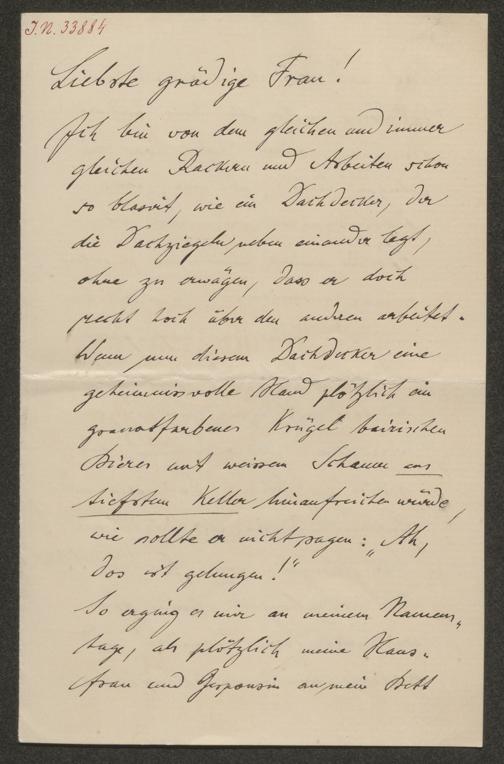 J.N. 33884
Liebste gnädige Frau!
Ich bin von dem gleichen und immer
gleichen Rackern und Arbeiten schon
so blasirt, wie ein Dachdecker, der
die Dachziegeln neben einander legt,
ohne zu erwägen, dass er doch
recht hoch über den anderen arbeitet.
Wenn nun diesem Dachdecker eine
geheimnissvolle Hand plötzlich ein
granatfarbenes Krügel bairischen
Bieres mit weissem Schaume aus
tiefstem Keller hinaufreichen würde,
wie sollte er nicht sagen: „Ah,
das ist gelungen!"
So erging es mir an meinem Namens-
tage, als plötzlich meine Haus-
frau und Gesponsin an mein Bett